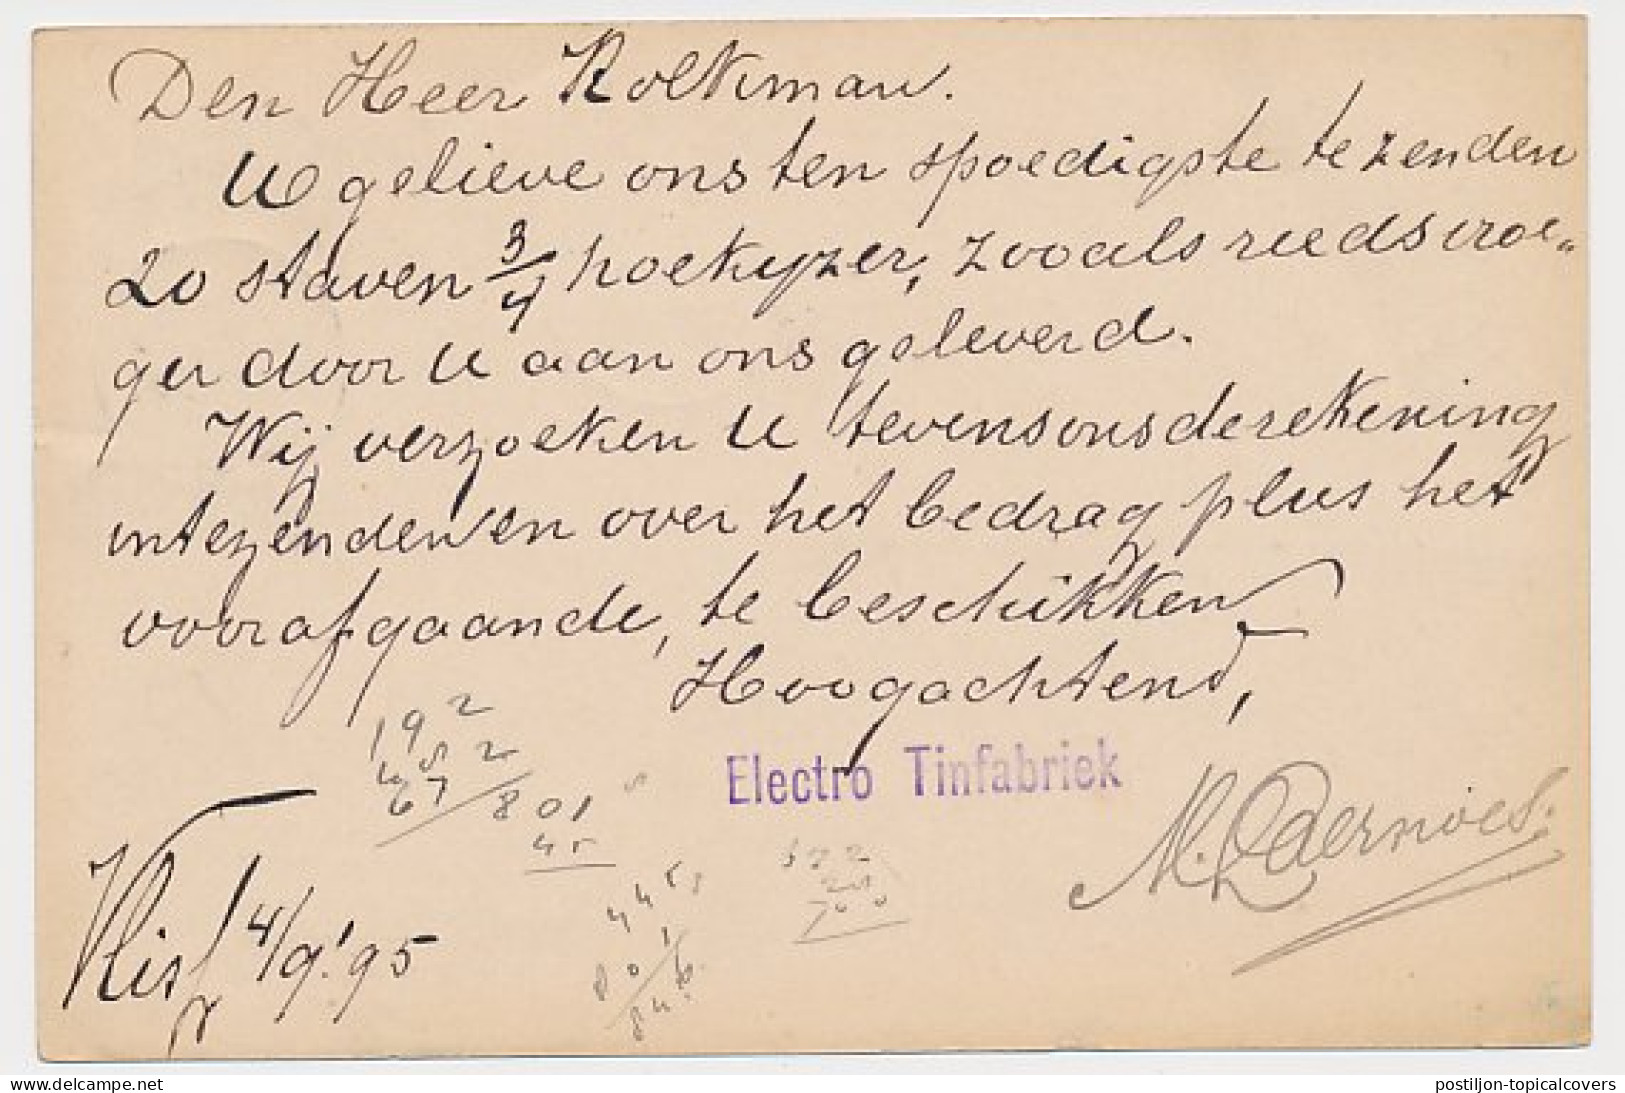 Den Heer Kolkman.
U gelieve ons ten spoedigste te zenden
20 staven 3/4 hoekyzer, zooals reeds vroe„
ger door U aan ons geleverd.
Wij verzoeken U tevens ons de rekening
in te zenden en over het bedrag plus het
voorafgaande, te beschikken
Hoogachtend,
Electro Tinfabriek
192
67
801
45
4/9'95
delcampe.net
postiljon-topicalcovers